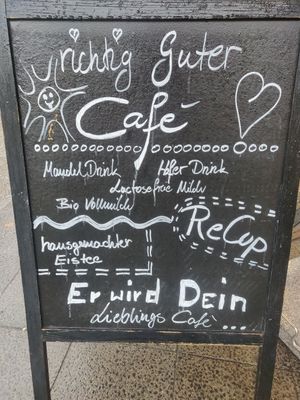 richtig Guter
Café
Mandel Drink Hafer Drink
Lactosefreie Milch
Bio Vollmilch
ReCup
hausgemachter
Eistee
Er wird Dein
Lieblings Café ...